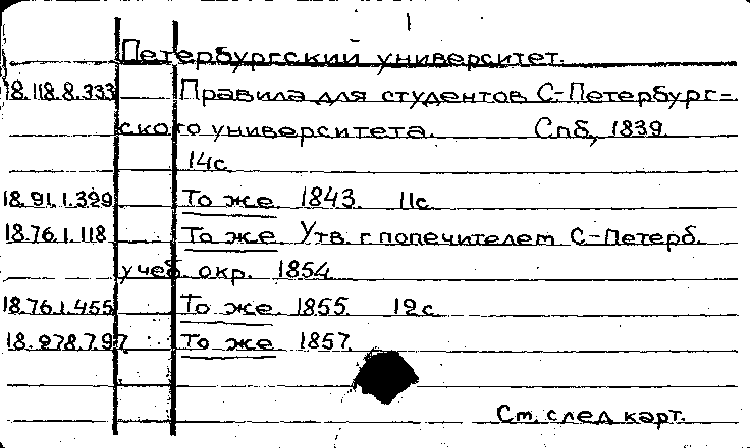 1
Петербургский университет.
18.118.8.333 Правила для студентов С-Петербург=
ского университета. Спб, 1839.
14с.
18.91.1.399 То же. 1843. 11с.
18.76.1.118 То же. Утв. г. попечителем С-Петерб.
учеб. окр. 1854.
18.76.1.455 То же. 1855. 12с.
18.278.7.97 То же. 1857.
См. след карт.